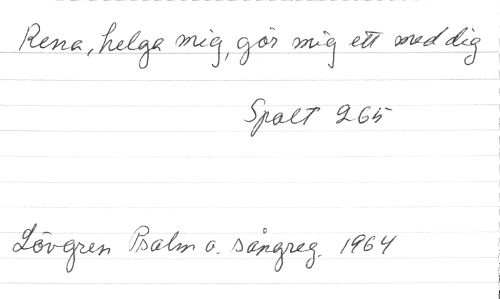 Rena, helga mig, gör mig ett med dig
Spalt 265
Lövgren Psalm o. sångreg. 1964